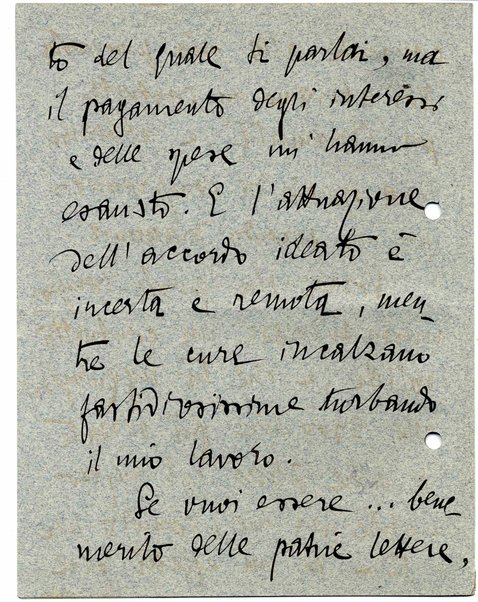 to del quale ti parlai, ma
il pagamento degli interessi
e delle spese mi hanno
esausto. E l'attuazione
dell'accordo ideato è
incerta e remota, men-
tre le cure incalzano
fastidiosissime turbando
il mio lavoro.
Se vuoi essere ... bene-
merito delle patrie lettere,